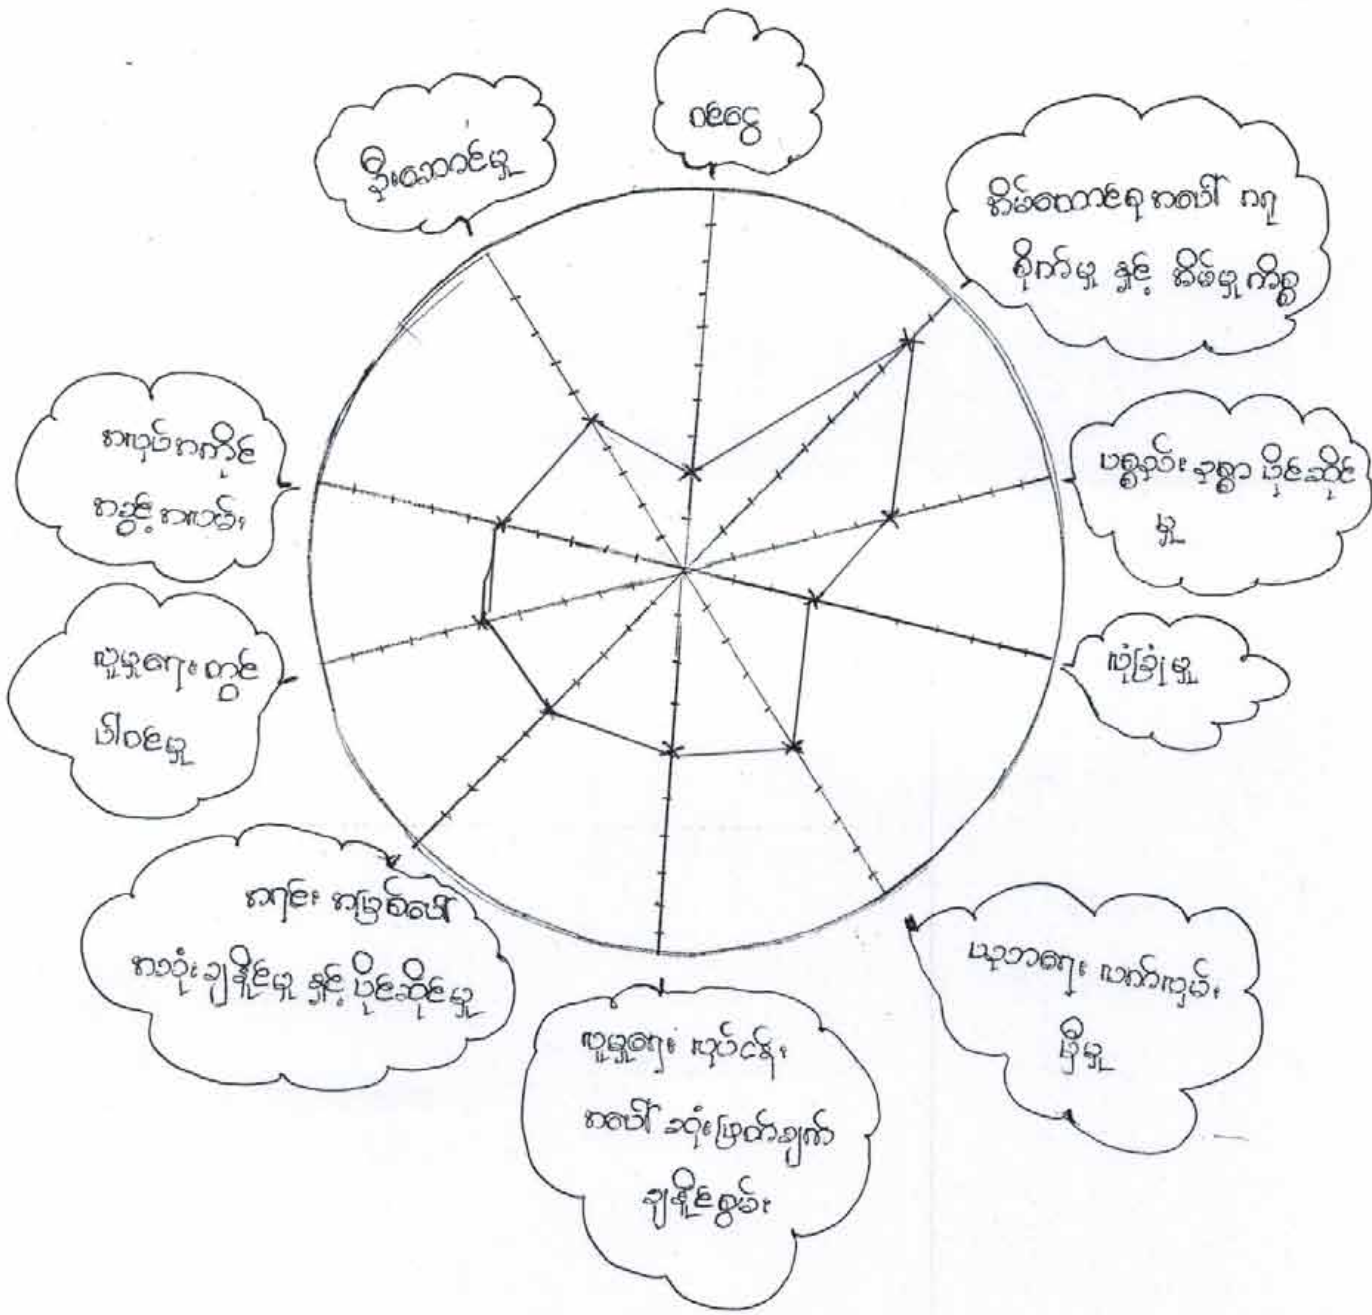 ဝင်ငွေ
အိမ်ထောင်ရှု အပေါ် ဂရု
စိုက်မှု နှင့် အိမ်မှုကိစ္စ
ပစ္စည်း ဥစ္စာ ပိုင်ဆိုင်
မှု
လုံခြုံမှု
ယုဘရေး လက်လှမ်း
မှီမှု
လူမှုရေး လုပ်ငန်း
အပေါ် ဆုံးဖြတ်ချက်
ချနိုင်စွမ်း
အရင်း အမြစ်ပေါ်
အသုံးချနိုင်မှု နှင့် ပိုင်ဆိုင်မှု
လူမှုရေး တွင်
ပါဝင်မှု
အလုပ်အကိုင်
အခွင့်အလမ်း
ဦးဆောင်မှု